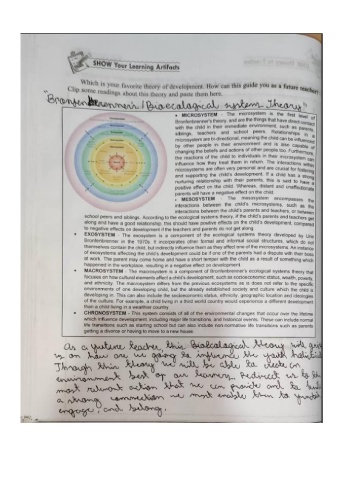 SHOW Your Learning Artifacts
Which is your favorite theory of development. How can this guide you as a future teacher?
Clip some readings about this theory and paste them here.
Theory"
• MICROSYSTEM - The microsystem is the first level of
Bronfenbrenner's theory, and are the things that have direct contact
with the child in their immediate environment, such as parents,
siblings, teachers and school peers. Relationships in a
microsystem are bi-directional, meaning the child can be influenced
by other people in their environment and is also capable of
changing the beliefs and actions of other people too. Furthermore,
the reactions of the child to individuals in their microsystem can
influence how they treat them in return. The interactions within
microsystems are often very personal and are crucial for fostering
and supporting the child's development. If a child has a strong
nurturing relationship with their parents, this is said to have a
positive effect on the child. Whereas, distant and unaffectionate
parents will have a negative effect on the child.
• MESOSYSTEM - The mesosystem encompasses the
interactions between the child's microsystems, such as the
interactions between the child's parents and teachers, or between
school peers and siblings. According to the ecological systems theory, if the child's parents and teachers get
along and have a good relationship, this should have positive effects on the child's development, compared
to negative effects on development if the teachers and parents do not get along.
• EXOSYSTEM - The exosystem is a component of the ecological systems theory developed by Urie
Bronfenbrenner in the 1970s. It incorporates other formal and informal social structures, which do not
themselves contain the child, but indirectly influence them as they affect one of the microsystems. An instance
of exosystems affecting the child's development could be if one of the parents had a dispute with their boss
at work. The parent may come home and have a short temper with the child as a result of something which
happened in the workplace, resulting in a negative effect on development.
• MACROSYSTEM - The macrosystem is a component of Bronfenbrenner's ecological systems theory that
focuses on how cultural elements affect a child's development, such as socioeconomic status, wealth, poverty,
and ethnicity. The macrosystem differs from the previous ecosystems as it does not refer to the specific
environments of one developing child, but the already established society and culture which the child is
developing in. This can also include the socioeconomic status, ethnicity, geographic location and ideologies
of the culture. For example, a child living in a third world country would experience a different development
than a child living in a wealthier country.
• CHRONOSYSTEM - This system consists of all of the environmental changes that occur over the lifetime
which influence development, including major life transitions, and historical events. These can include normal
life transitions such as starting school but can also include non-normative life transitions such as parents
getting a divorce or having to move to a new house.
As a future teacher, this Bioecological theory will guide
us on how are we going to influence the youth holistically
Through this theory we will be able to create an
environment best of our learners. Redirect us to the
most relevant action that we can provide and to build
a strong connection we must enable them to
engage, and belong.